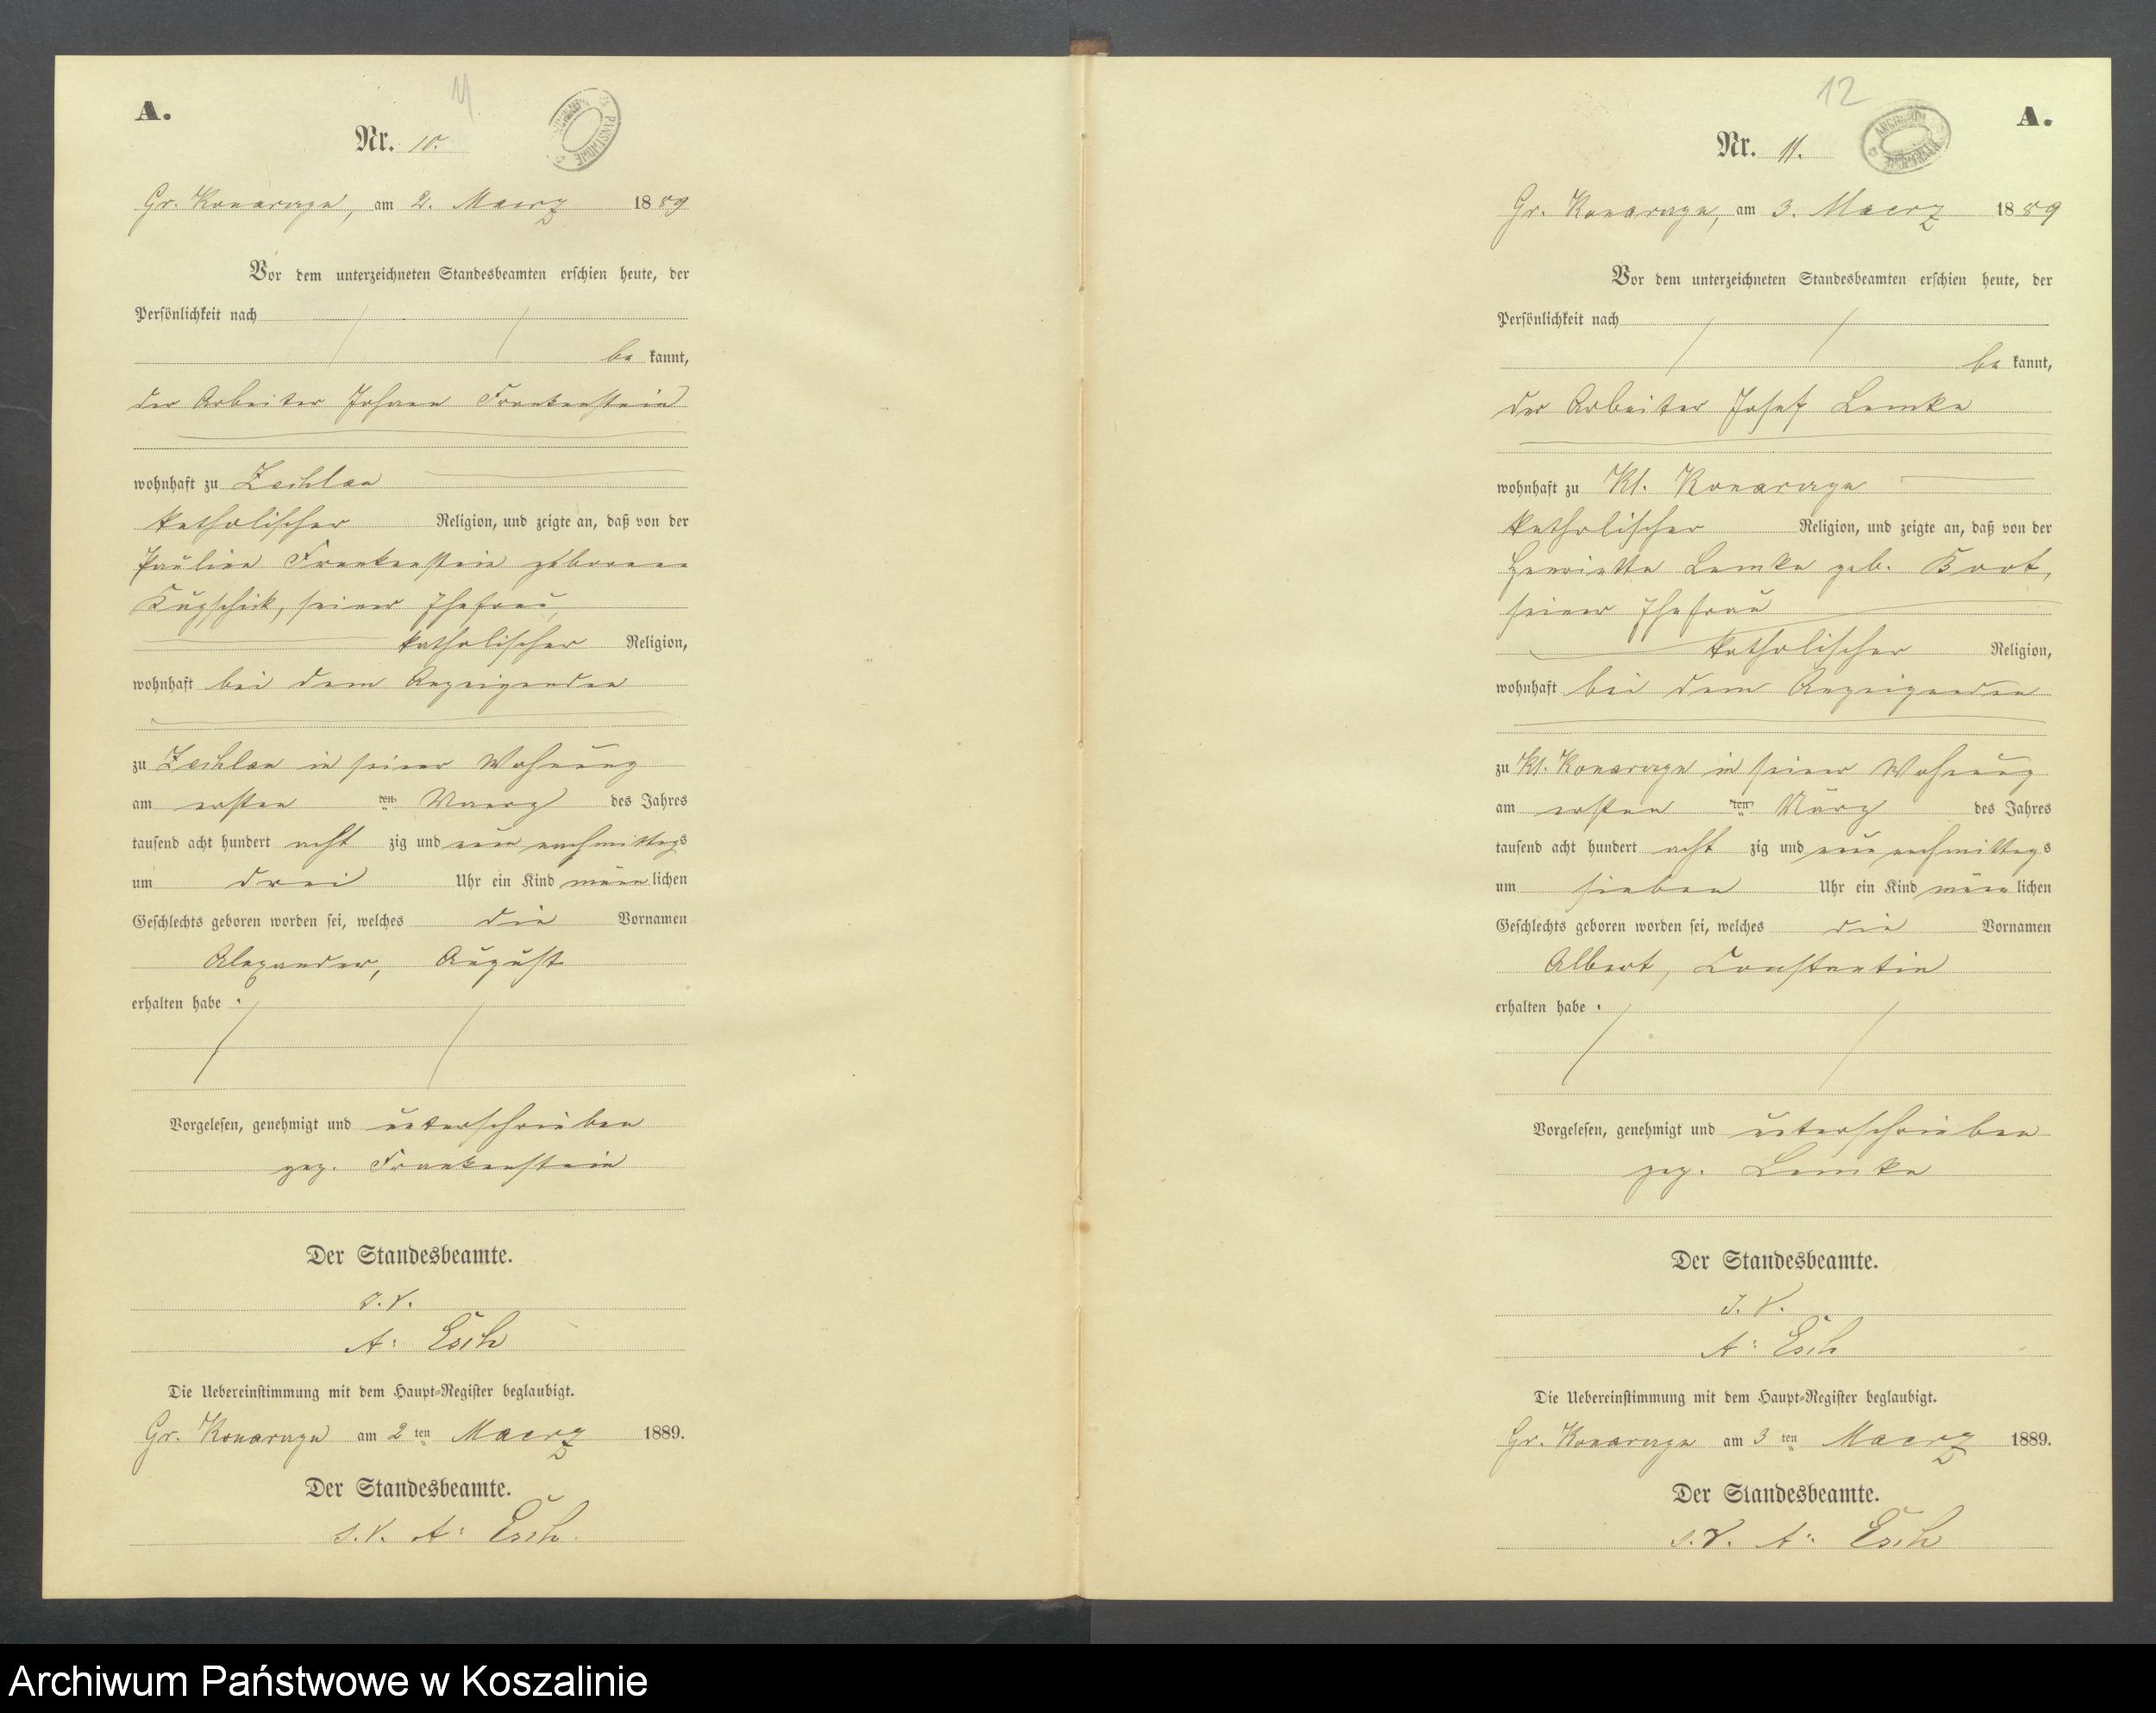 11
A.
Nr. 10.
Gr. Konarczyn, am 2. Maerz 1889
Vor dem unterzeichneten Standesbeamten erschien heute, der
Persönlichkeit nach
be kannt,
der Arbeiter Johann Frankenstein
wohnhaft zu Zechlau
katholischer Religion, und zeigte an, daß von der
Pauline Frankenstein geborene
seiner Ehefrau,
katholischer Religion,
wohnhaft bei dem Anzeigenden
zu Zechlau in seiner Wohnung
am ersten ten Maerz des Jahres
tausend acht hundert acht zig und neun nachmittags
um drei Uhr ein Kind männlichen
Geschlechts geboren worden sei, welches die Vornamen
Alexander, August
erhalten habe.
Vorgelesen, genehmigt und unterschrieben
gez. Frankenstein
Der Standesbeamte.
J. V.
A. Esch
Die Uebereinstimmung mit dem Haupt-Register beglaubigt.
Gr. Konarczyn am 2 ten Maerz 1889.
Der Standesbeamte.
J. V. A. Esch
12
A.
Nr. 11.
ARCHIWUM
Gr. Konarczyn, am 3. Maerz 1889
Vor dem unterzeichneten Standesbeamten erschien heute, der
Persönlichkeit nach
be kannt,
der Arbeiter Josef Lemke
wohnhaft zu Kl. Konarczyn
katholischer Religion, und zeigte an, daß von der
Henriette Lemke geb.
seiner Ehefrau
katholischer Religion,
wohnhaft bei dem Anzeigenden
zu Kl. Konarczyn in seiner Wohnung
am ersten ten März des Jahres
tausend acht hundert acht zig und neun nachmittags
um sieben Uhr ein Kind männlichen
Geschlechts geboren worden sei, welches die Vornamen
Albert, Constantin
erhalten habe.
Vorgelesen, genehmigt und unterschrieben
gez. Lemke
Der Standesbeamte.
J. V.
A. Esch
Die Uebereinstimmung mit dem Haupt-Register beglaubigt.
Gr. Konarczyn am 3 ten Maerz 1889.
Der Standesbeamte.
J. V. A. Esch
Archiwum Państwowe w Koszalinie